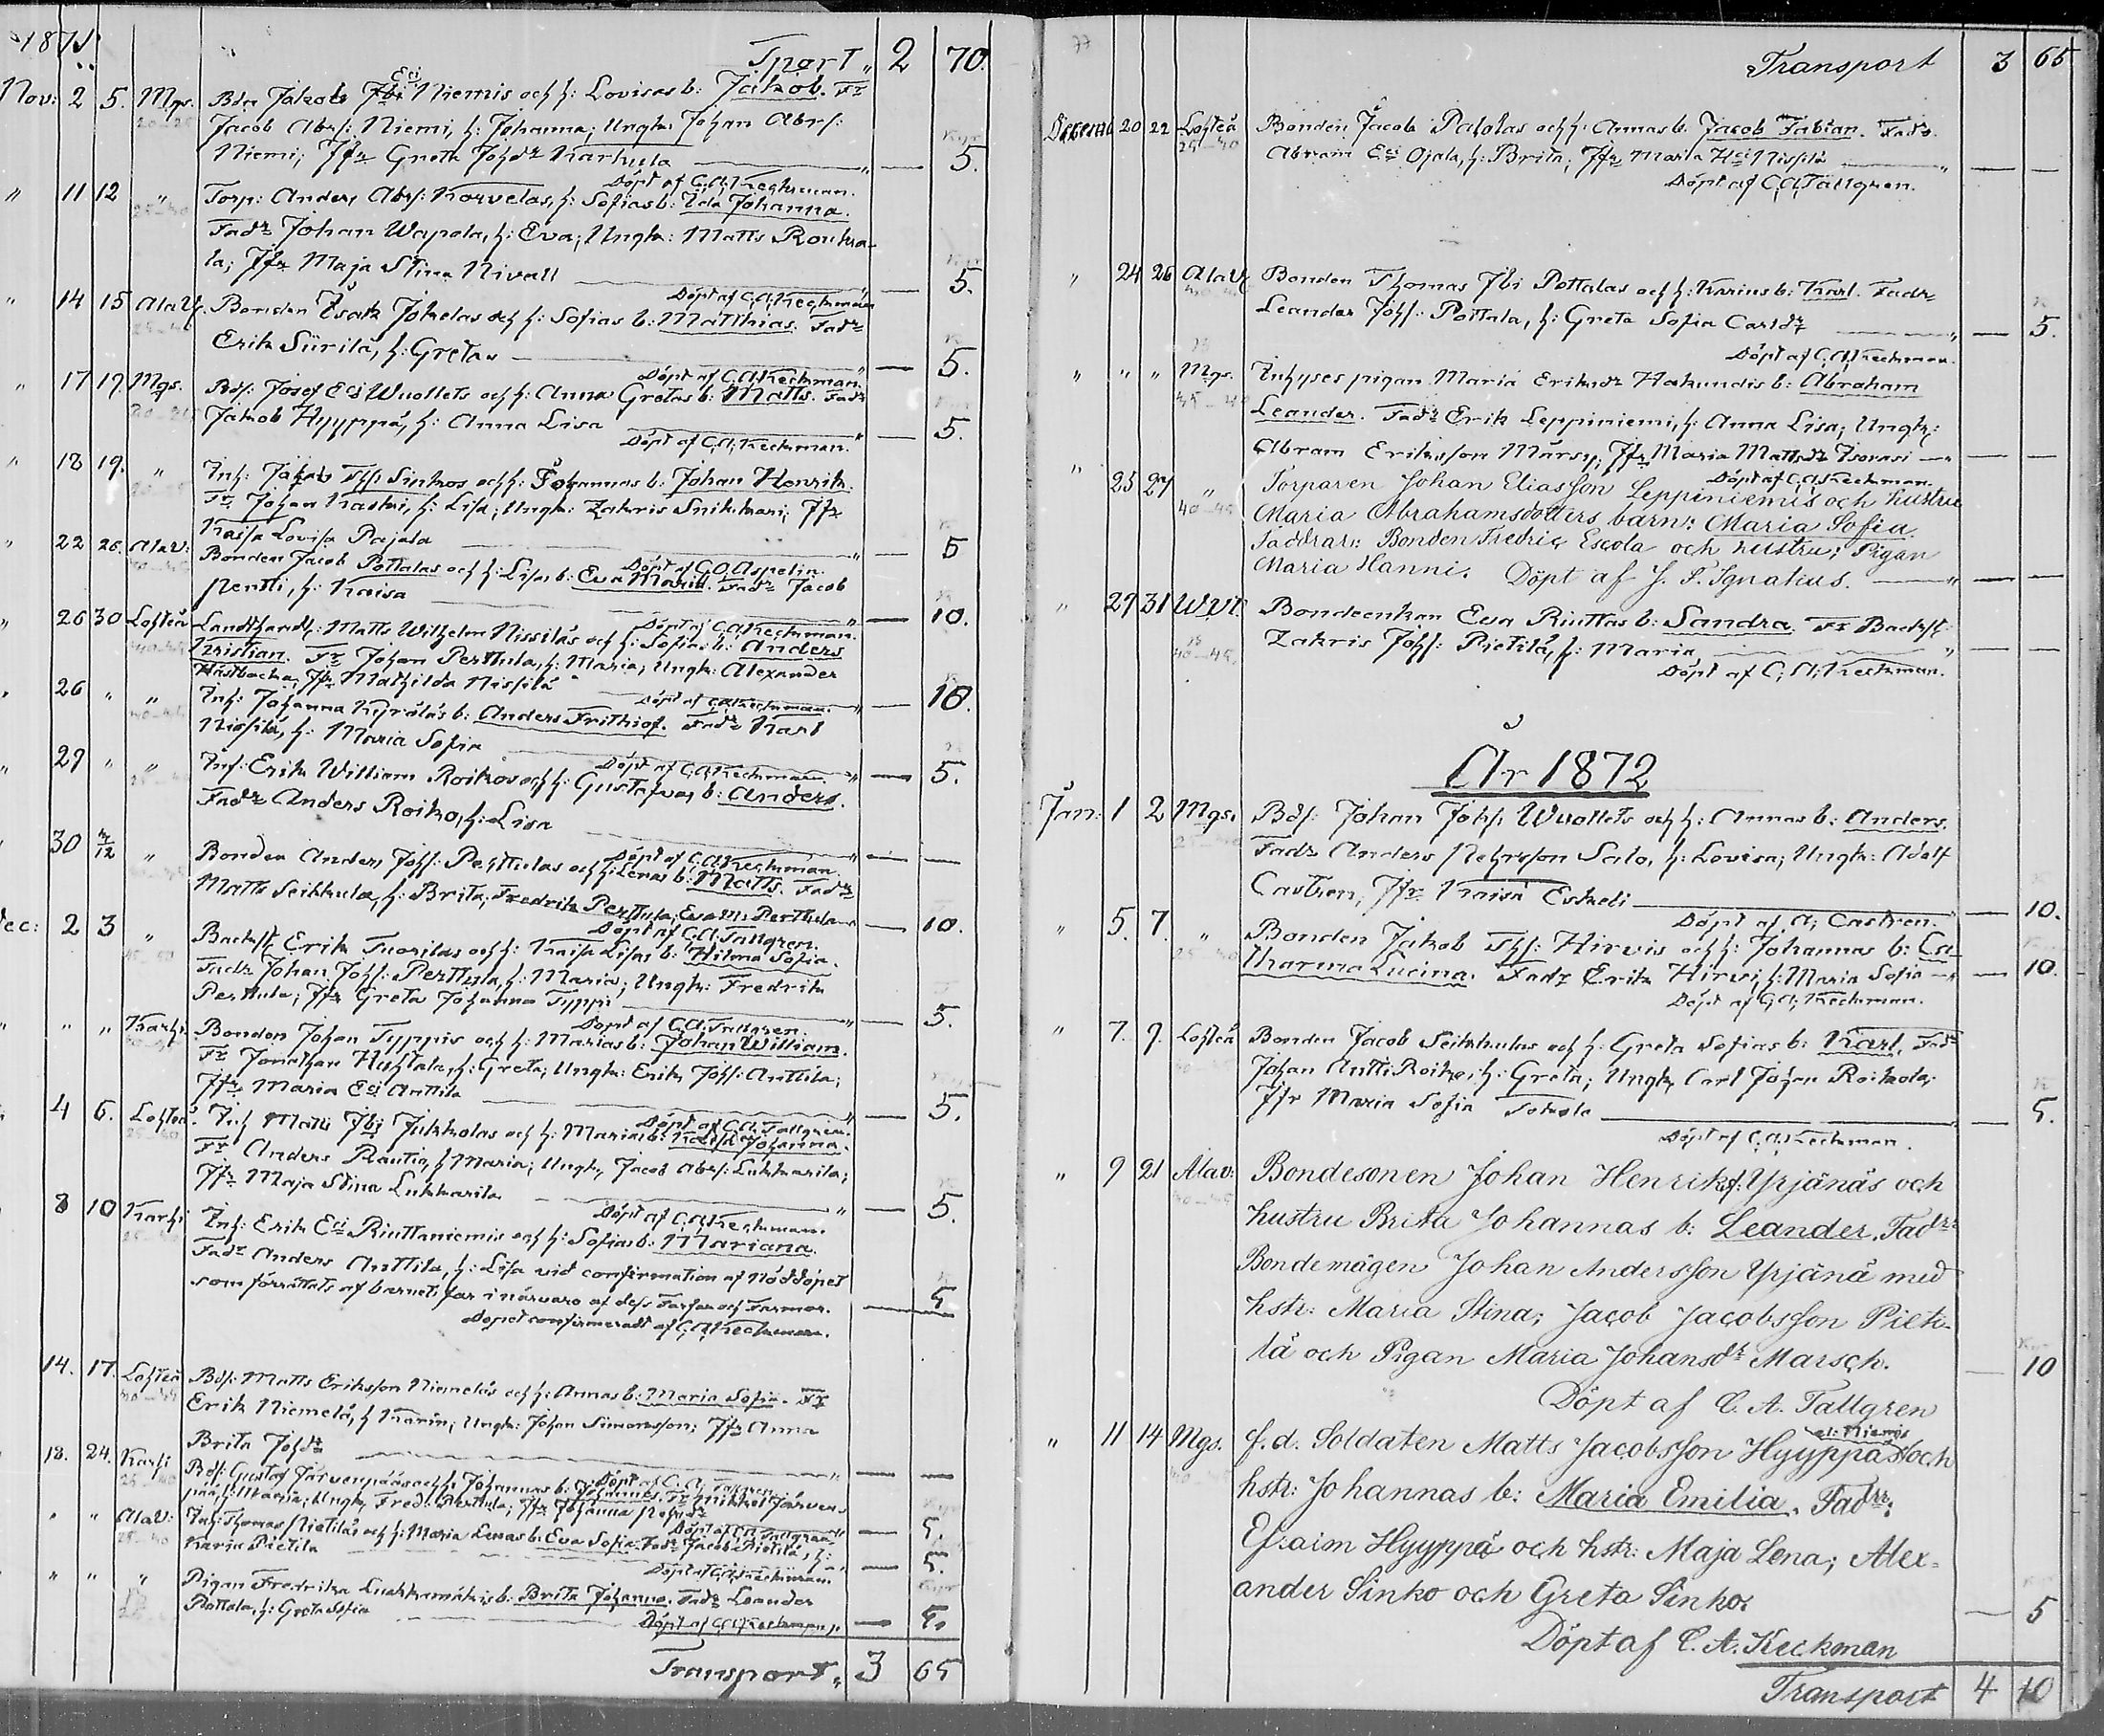 1871.
Tport „ 2 70.
Nov: 2 5. Mgs. Bdn Jakob Eci Niemis och h: Lovisas b: Jakob. Fr
Jacob Abrs: Niemi, h: Johanna; Ungk: Johan Abrs:
Niemi; Jfr Greta Johdr Karhula „ — 5.
Döpt af C.A. Keckman.
„ 11 12 „ Torp: Anders Abrs: Korvelas, h: Sofias b: Ida Johanna.
Fadr Johan Wapola, h: Eva; Ungk: Matts Rouka-
la; Jfr Maja Stina Nivall — 5.
Döpt af C.A. Keckman
„ 14 15 AlaV. Bonden Isak Jokelas och h: Sofias b: Matthias. Fadr
Erik Siirilä, h: Greta „ — 5.
Döpt af C.A. Keckman.
„ 17 19. Mgs. Bds: Josef Eci Wuollets och h: Anna Gretas b: Matts. Fadr
Jakob Hyyppä, h: Anna Lisa „ — 5.
Döpt af C.A. Keckman.
„ 18 19. „ Inh: Jakob Ths: Sinkos och h: Johannas b: Johan Henrik.
Fr Johan Kaski, h: Lisa; Ungk: Zakris Snikkari; Jfr
Kaisa Lovisa Pajala „ — 5
Döpt af C.O. Aspelin.
„ 22 26. AlaV: Bonden Jacob Pottalas och h: Lisas b: Eva Maria. Fadr Jacob
Pentti, h: Kaisa „ — 10.
Döpt af C.A. Keckman.
„ 26 30 Lohteå Landthandl: Matts Wilhelm Nissiläs och h: Sofias b: Anders
Kristian. Fr Johan Perttula, h: Maria; Ungk: Alexander
Hästbacka, Jfr Mathilda Nissilä „ — 10.
Döpt af C.A. Keckman.
„ 26 „ „ Inh: Johanna b: Anders Frithiof. Fadr Karl
Nissilä, h: Maria Sofia
Döpt af C.A. Keckman. „ — 5.
„ 29 „ „ Inh: Erik William Roikos och h: Gustafvas b: Anders.
Fadr Anders Roiko, h: Lisa „ — —
Döpt af C.A. Keckman.
30 3/12 „ Bonden Anders Johs: Perttulas och h: Lenas b: Matts. Fadr
Matts Seikkula, h: Brita; Fredrik Perttula; Eva M: Perttula — 10.
Döpt af C.A. Tallgren.
Dec: 2 3 „ Backst: Erik Tuorilas och h: Kaisa Lisas b: Hilma Sofia.
Fadr Johan Johs: Perttula, h: Maria; Ungk: Fredrik
Perttula; Jfr Greta Johanna Typpi „ — 5.
Döpt af C.A. Tallgren.
„ „ „ Karhi Bonden Johan Typpis och h: Marias b: Johan William.
Fr Jonathan Huhtala, h: Greta; Ungk: Erik Johs: Anttila;
Jfr Maria Eci Anttila „ — 5.
Döpt af C.A. Tallgren.
4 6. Lohteå. Inh Matts Jbi Jukkolas och h: Marias b: Kaisa Johanna.
Fr Anders Rautio, h Maria; Ungk, Jacob Abrs: Lukkarila;
Jfr Maja Stina Lukkarila „ — 5.
Döpt af C.A. Keckman.
8 10 Karhi Inh: Erik Eci Riuttaniemis och h: Sofias b: Mariana.
Fadr Anders Anttila, h: Lisa vid confirmation af nöddopet
som förrättats af barnets far i närvaro af dess Farfar och Farmor. — 5
Dopet confirmeradt af C.A. Keckman.
14. 17. Lohteå Bds: Matts Eriksson Niemeläs och h: Annas b: Maria Sofia. Fr
Erik Niemelä, h Karin; Ungk: Johan Simonsson; Jfr Anna
Brita Johdr „ — —
Döpt af C.A. Tallgren
18. 24. Karhi Bds: Gustaf Järvenpääs och h: Johannas b: Johannes. Fr Mikkel Järven-
pää, h: Maria; Ungk, Fredr: Perttula; Jfr Johanna — 5.
Döpt af C.A. Tallgren
„ „ AlaV: Inh: Thomas Pietiläs och h: Maria Lenas b: Eva Sofia. Fadr Jacob Pietilä, h:
Karin Pietilä — 5.
Döpt af C.A. Keckman
„ „ „ Pigan Fredrika Luokkamäkis b: Brita Johanna. Fadr Leander
Pottala, h: Greta Sofia — 5.
Döpt af C.A. Keckman.
Transport „ 3 65
77
Transport 3 65
Decemb 20 22 Lohteå Bonden Jacob Paholas och h: Annas b. Jacob Fabian. Fadr.
Abram Eci Ojala, h: Brita; Jfr Maria Hci Nissilä „ — —
Döpt af C.A. Tallgren.
„ 24 26 AlaV Bonden Thomas Jbi Pottalas och h: Karins b: Karl. Fadr
Leander Johs: Pottala, h: Greta Sofia Carldr „ — 5.
Döpt af C.A. Keckman.
„ „ „ Mgs. Inhyses pigan Maria Eriksdr Hakundis b: Abraham
Leander. Fadr Erik Leppiniemi, h: Anna Lisa; Ungk:
Abram Eriksson Märsy; Jfr Maria Mattsdr Isovasi — — —
Döpt af C.A. Keckman.
„ 25 27 „ Torparen Johan Eliasson Leppiniemis och hustru
Maria Abrahamsdotters barn: Maria Sofia.
Faddrar: Bonden Fredric Escola och hustru; Pigan
Maria Hanni. Döpt af J. F. Ignatius. „ — —
„ 29 31 WVt. Bondeenkan Eva Riuttas b: Sandra. Fr Backst:
Zakris Johs: Pietilä, h: Maria „ — —
Döpt af C.A. Keckman.
År 1872
Jan: 1 2 Mgs. Bds: Johan Johs: Wuollets och h: Annas b: Anders.
Fadr Anders Pehrsson Salo, h: Lovisa; Ungk: Adolf
Castren; Jfr Kaisa Eskeli — 10.
Döpt af A; Castren.
„ 5. 7. „ Bonden Jakob Ths: Hirvis och h: Johannas b: Ca-
tharina Lucina. Fadr Erik Hirvi, h: Maria Sofia — 10.
Döpt af C.A. Keckman.
„ 7. 9. Lohteå Bonden Jacob Seikkulas och h: Greta Sofias b: Karl. Fadr
Johan Antti Roiko, h: Greta; Ungk, Carl Johan Roikola;
Jfr Maria Sofia Tokola — 5.
Döpt af C.A. Keckman.
„ 9 21 Alav: Bondesonen Johan Henriks: Yrjänäs och
hustru Brita Johannas b: Leander. Fadr:
Bondemågen Johan Andersson Yrjänä med
hstr: Maria Stina; Jacob Jacobsson Pieti-
lä och Pigan Maria Johansdr Marsch. — 10
Döpt af C. A. Tallgren
el: Niemis
„ 11 14 Mgs. f. d. Soldaten Matts Jacobsson Hyyppäs och
hstr: Johannas b: Maria Emilia. Fadrr:
Efraim Hyyppä och hstr: Maja Lena; Alex-
ander Sinko och Greta Sinko. — 5
Döpt af C. A. Keckman
Transport 4 10